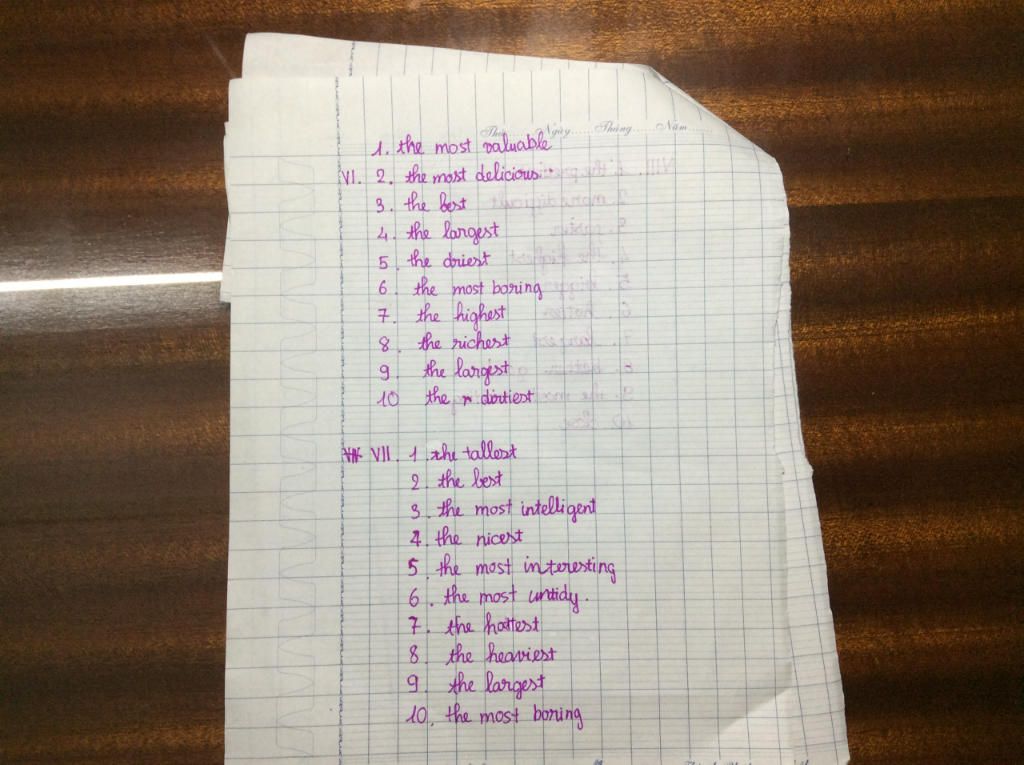 Thứ Ngày Tháng Năm
1. the most valuable
VI. 2. the most delicious
3. the best
4. the largest
5. the driest
6. the most boring
7. the highest
8. the richest
9. the largest
10 the dirtiest
VII. 1. the tallest
2. the best
3. the most intelligent
4. the nicest
5. the most interesting
6. the most untidy.
7. the hottest
8. the heaviest
9. the largest
10. the most boring